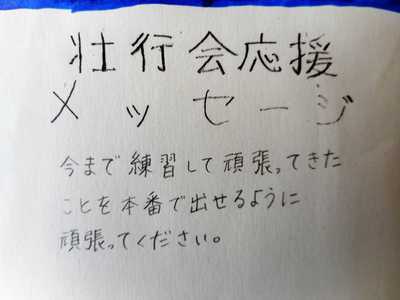 壮行会応援
メッセージ
今まで練習して頑張ってきた
ことを本番で出せるように
頑張ってください。